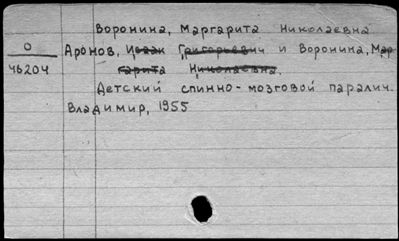 Воронина, Маргарита Николаевна
О
46204
Аронов, Исаак Григорьевич и Воронина, Мар-
гарита Николаевна.
Детский спинно-мозговой паралич.
Владимир, 1955